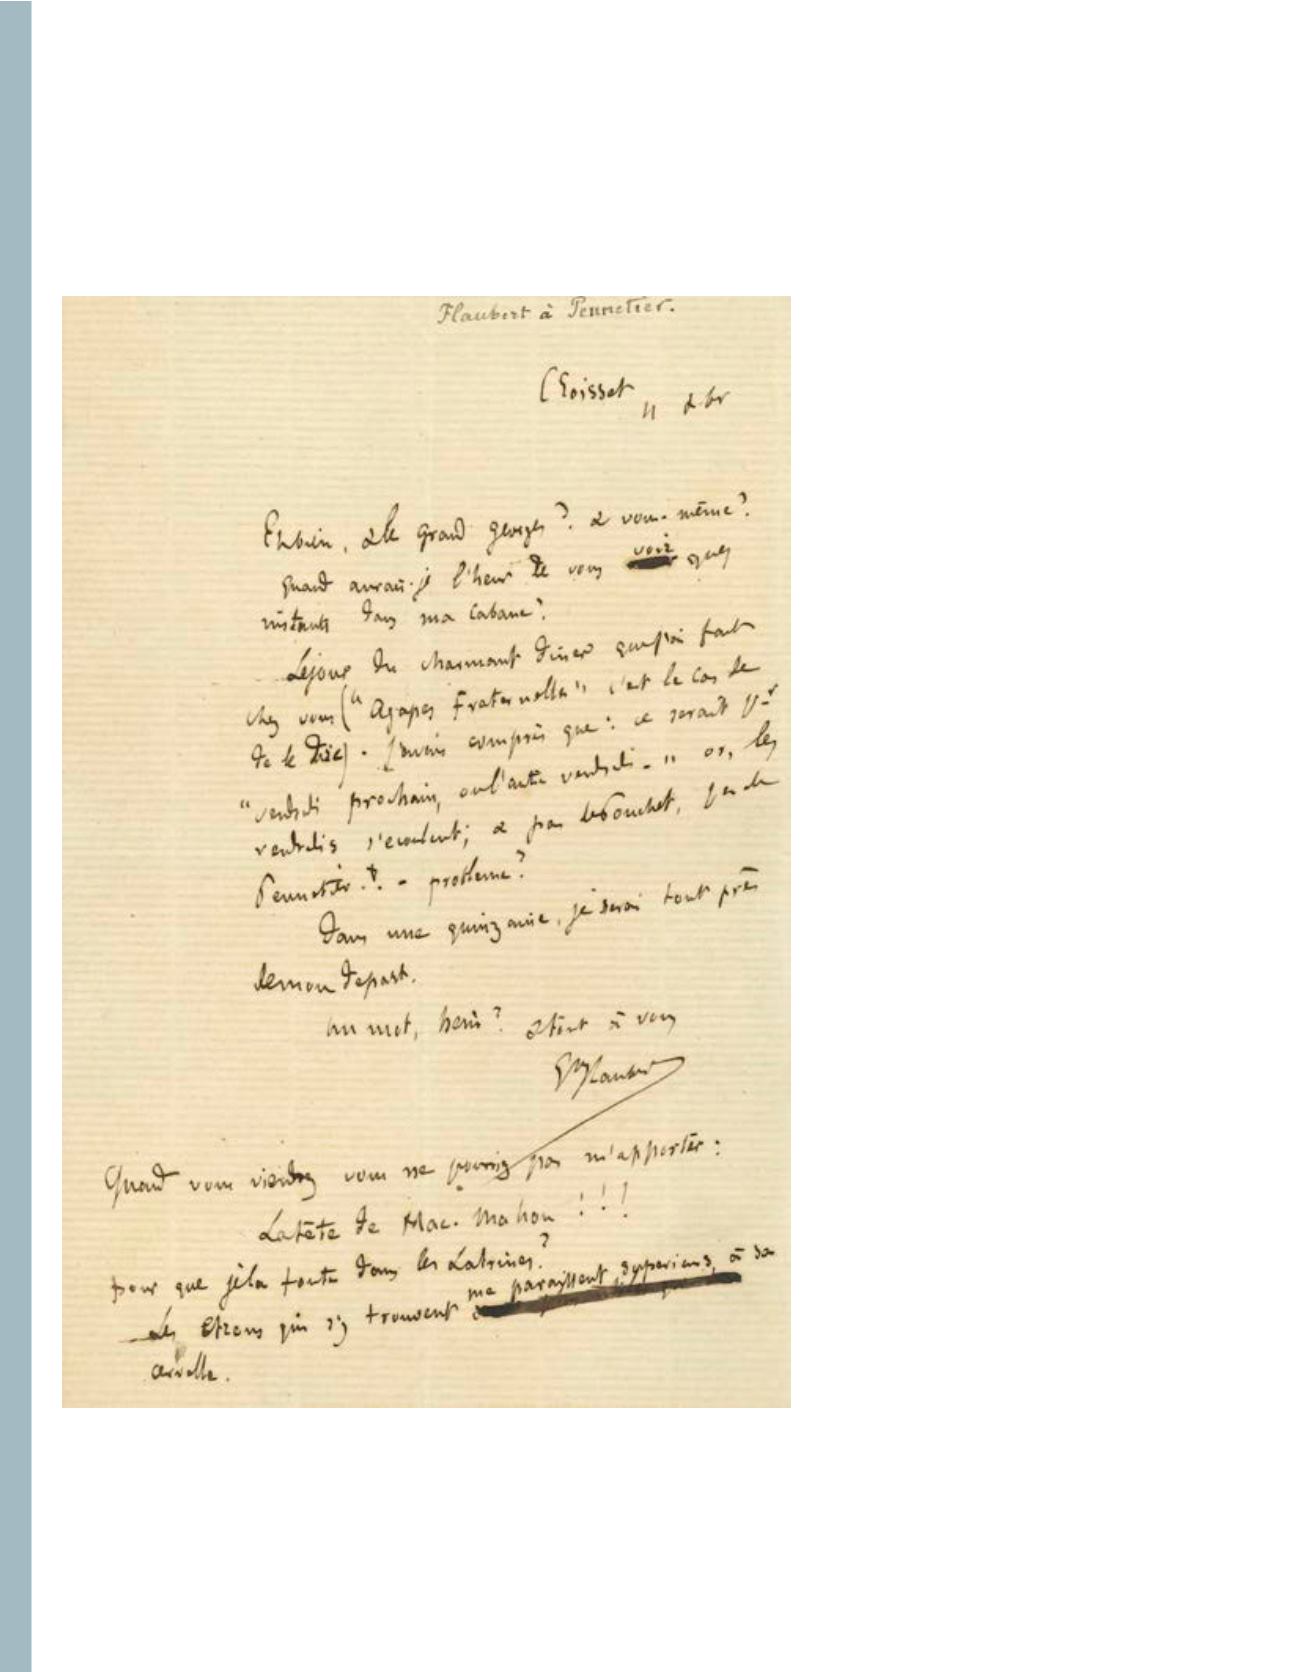 Flaubert à Pennetier.
Croisset 11 8br
Eh bien, & le grand georges? & vous-même?
quand aurai-je l'heur de vous voir qques
instants dans ma cabane?
Le jour du charmant diner que j'ai fait
chez vous ("Agapes fraternelles" c'est le cas de
de le dire) - j'avais compris que: ce serait
"vendredi prochain, ou l'autre vendredi -" or, les
vendredis s'ecoulent; & pas de Pouchet, pas de
Pennetier.?. - probleme?
Dans une quinzaine, je serai tout près
de mon depart.
un mot, hein? & tout à vous
Gve Flaubert
Quand vous viendrez vous ne pourriez pas m'apporter:
La tête de Mac-Mahon!!!
pour que je la foute dans les Latrines?
Les Etrons qui s'y trouvent me paraissent superieurs, à sa
cervelle.